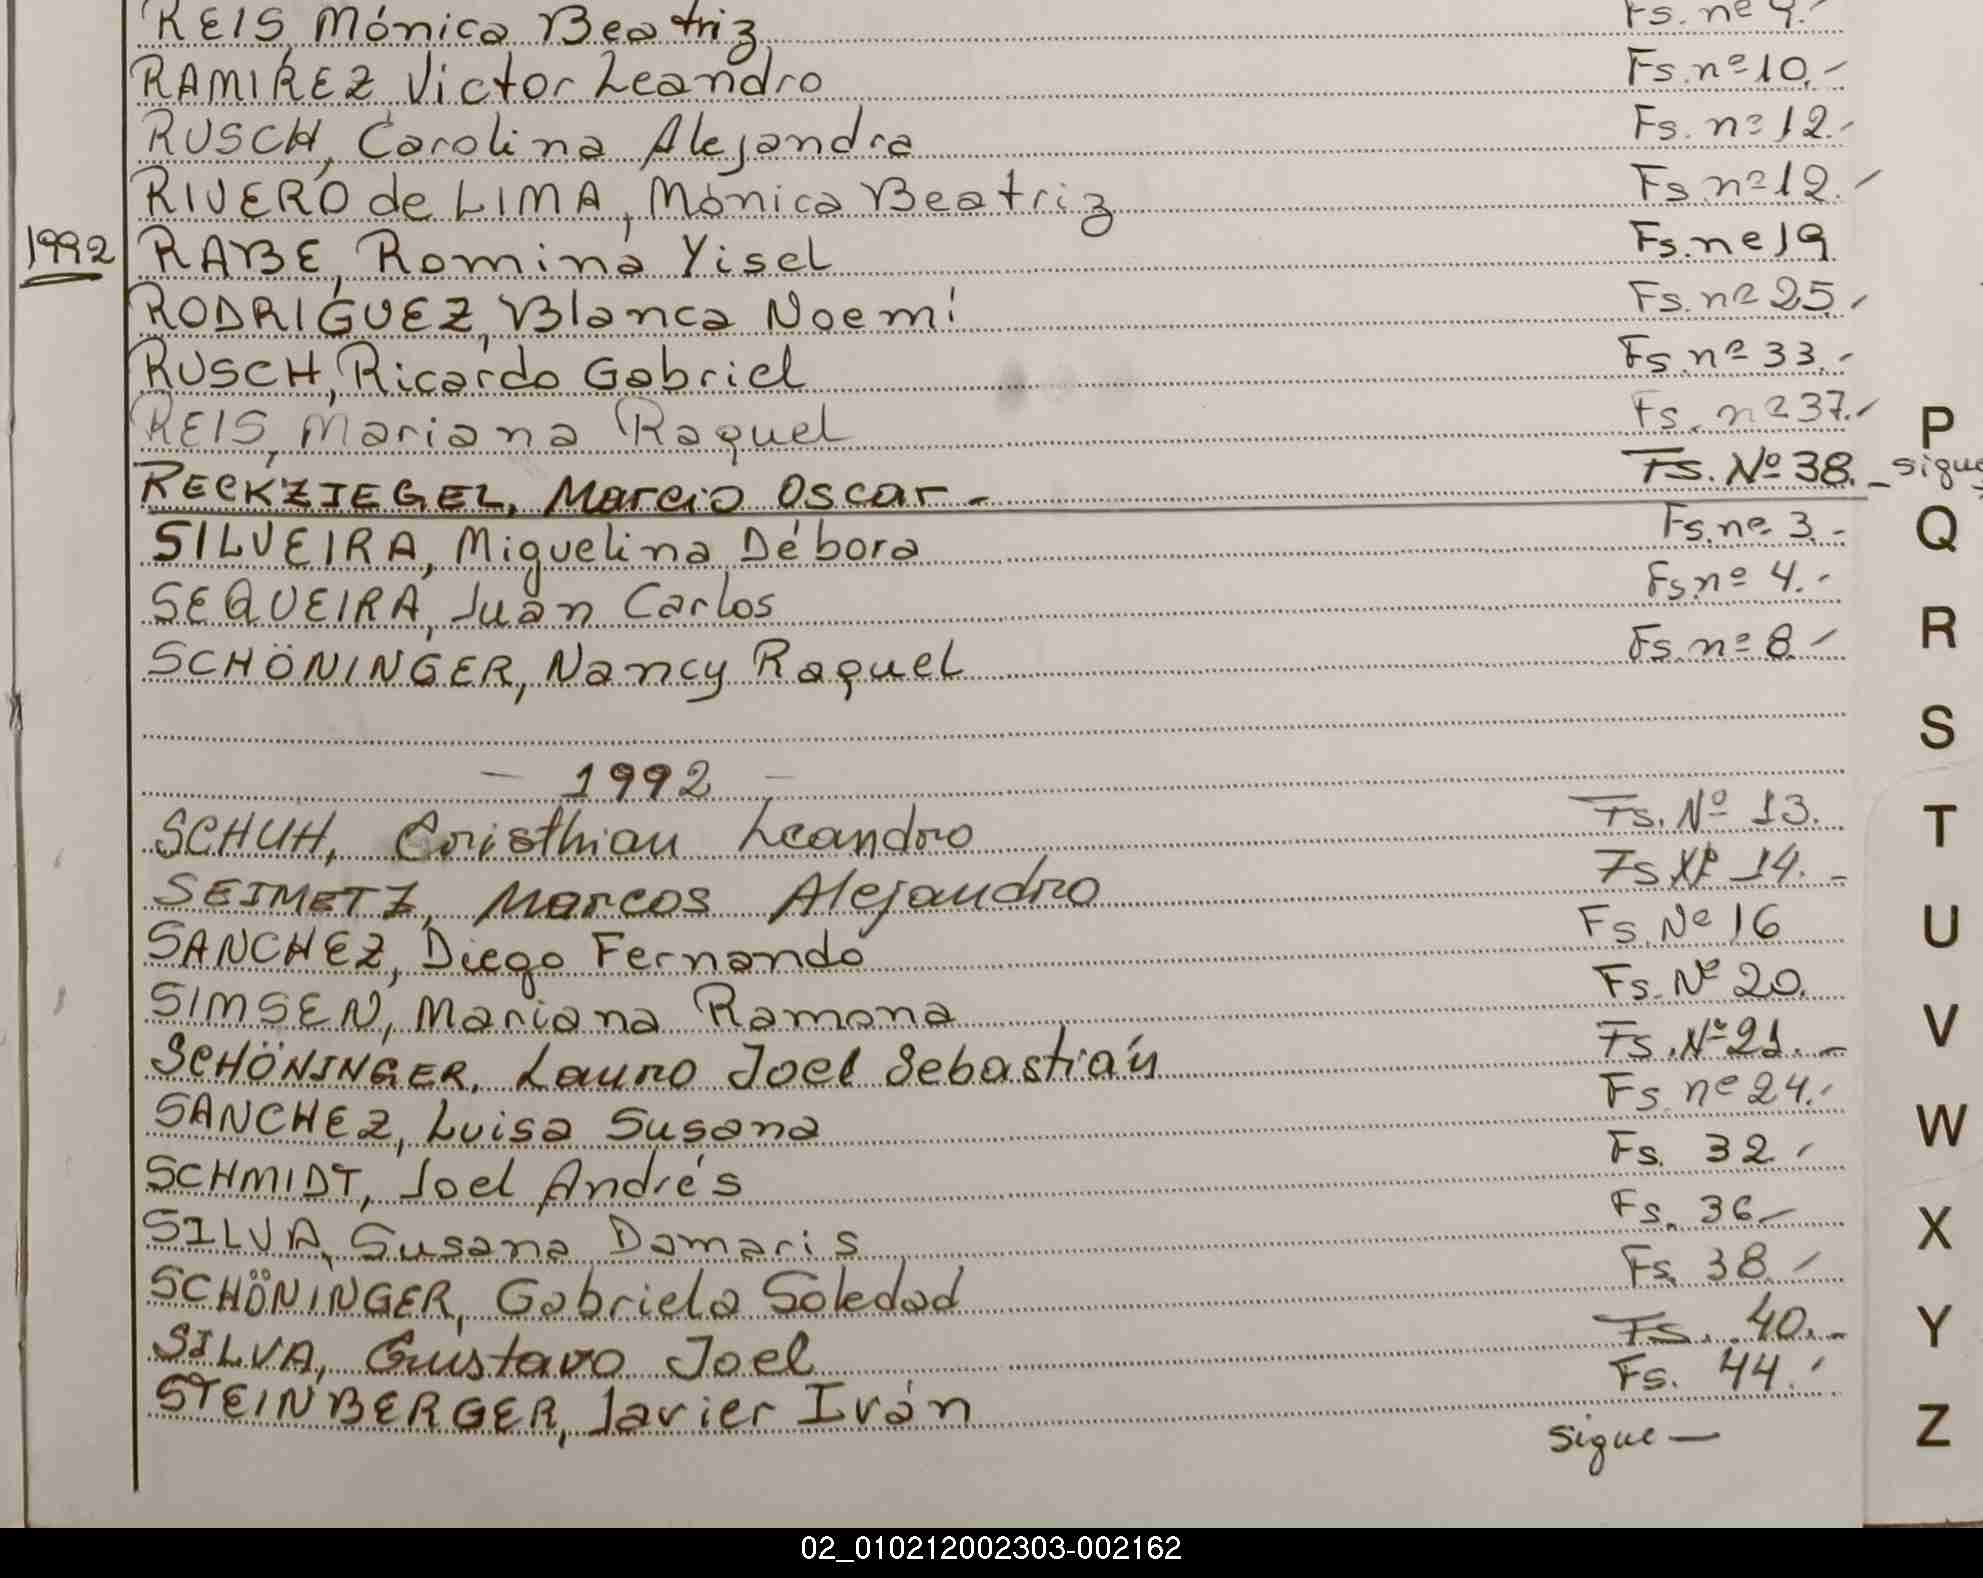 REIS, Mónica Beatriz Fs. nº 9.-
RAMIREZ Victor Leandro Fs. nº 10.-
RUSCH, Carolina Alejandra Fs. nº 12.-
RIVERO de LIMA, Mónica Beatriz Fs. nº 12.-
1992 RABE, Romina Yisel Fs. nº 19
RODRIGUEZ, Blanca Noemí Fs. nº 25.-
RUSCH, Ricardo Gabriel Fs. nº 33.-
REIS, Mariana Raquel Fs. nº 37.-
RECKZIEGEL, Marcio Oscar.- Fs. Nº 38.- sigue
SILVEIRA, Miguelina Débora Fs. nº 3.-
SEQUEIRA, Juan Carlos Fs. nº 4.-
SCHÖNINGER, Nancy Raquel Fs. nº 8.-
- 1992 -
SCHUH, Cristhian Leandro Fs. Nº 13.
SEIMETZ, Marcos Alejandro Fs Nº 14.-
SANCHEZ, Diego Fernando Fs. Nº 16
SIMSEN, Mariana Ramona Fs. Nº 20.
SCHÖNINGER, Lauro Joel Sebastián Fs. Nº 21.-
SANCHEZ, Luisa Susana Fs. nº 24.-
SCHMIDT, Joel Andrés Fs. 32.-
SILVA, Susana Damaris Fs. 36.-
SCHÖNINGER, Gabriela Soledad Fs. 38.-
SILVA, Gustavo Joel Fs. 40.-
STEINBERGER, Javier Iván Fs. 44.-
sigue—
P
Q
R
S
T
U
V
W
X
Y
Z
02_010212002303-002162